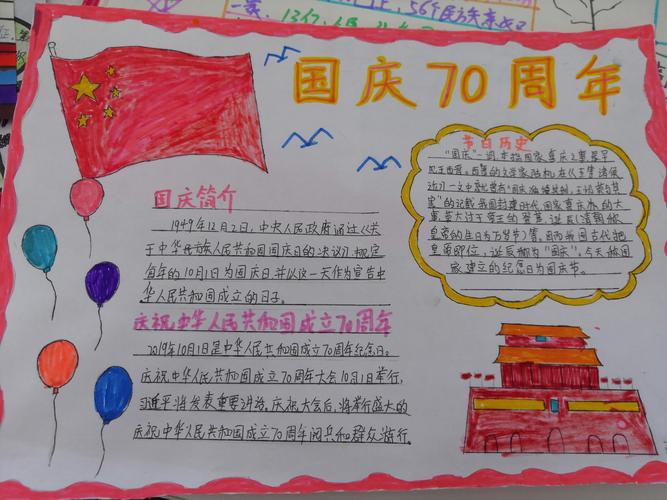 13亿人民
56个民族
国庆70周年
国庆简介
1949年12月2日,中央人民政府通过《关
于中华民族人民共和国国庆日的决议》规定
每年的10月1日为国庆日,并以这一天作为宣告中
华人民共和国成立的日子。
庆祝中华人民共和国成立70周年
2019年10月1日是中华人民共和国成立70周年纪念日。
庆祝中华人民共和国成立70周年大会10月1日举行,
习近平将发表重要讲话。庆祝大会后,将举行盛大的
庆祝中华人民共和国成立70周年阅兵和群众游行。
节日历史
"国庆"一词,本指国家喜庆之事,最早
见于西晋。西晋的文学家陆机在《五等诸侯
论》一文中就曾有"国庆独飨其利,主忧莫与其
害"的记载、我国封建时代、国家喜庆的大
事,莫大过于帝王的登基、诞辰(清朝称
皇帝的生日为万岁节)等。因而我国古代把
皇帝即位、诞辰称为"国庆"。今天称国
家建立的纪念日为国庆节。